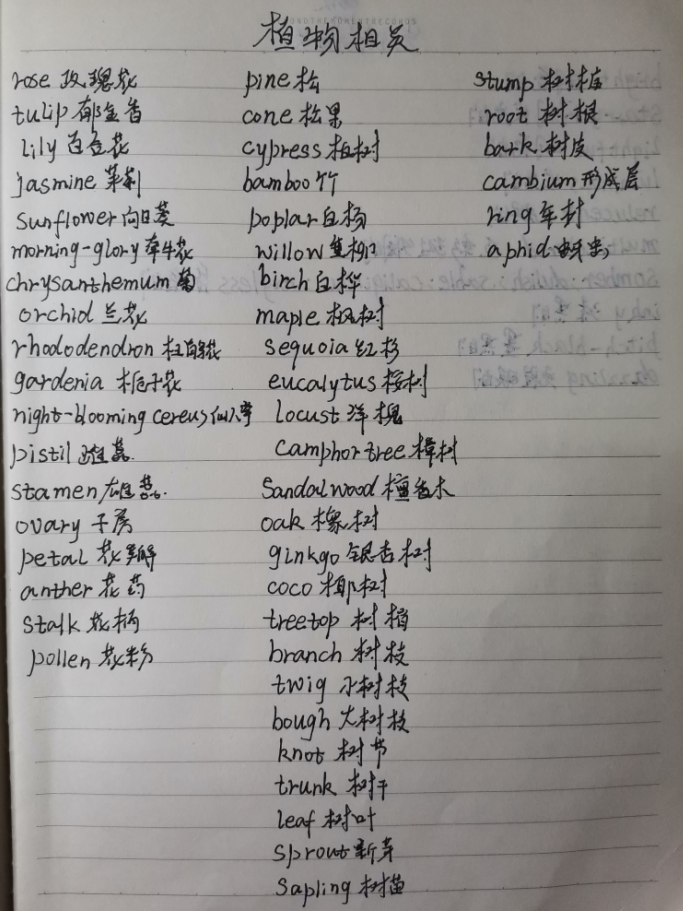 植物相关
rose 玫瑰花
tulip 郁金香
lily 百合花
jasmine 茉莉
sunflower 向日葵
morning-glory 牵牛花
chrysanthemum 菊
orchid 兰花
rhododendron 杜鹃花
gardenia 栀子花
night-blooming cereus 仙人掌
pistil 雌蕊
stamen 雄蕊
ovary 子房
petal 花瓣
anther 花药
stalk 花柄
pollen 花粉
pine 松
cone 松果
cypress 柏树
bamboo 竹
poplar 白杨
willow 垂柳
birch 白桦
maple 枫树
sequoia 红杉
eucalytus 桉树
locust 洋槐
camphor tree 樟树
sandalwood 檀香木
oak 橡树
ginkgo 银杏树
coco 椰树
treetop 树梢
branch 树枝
twig 小树枝
bough 大树枝
knot 树节
trunk 树干
leaf 树叶
sprout 新芽
sapling 树苗
stump 树桩
root 树根
bark 树皮
cambium 形成层
ring 年
aphid 蚜虫